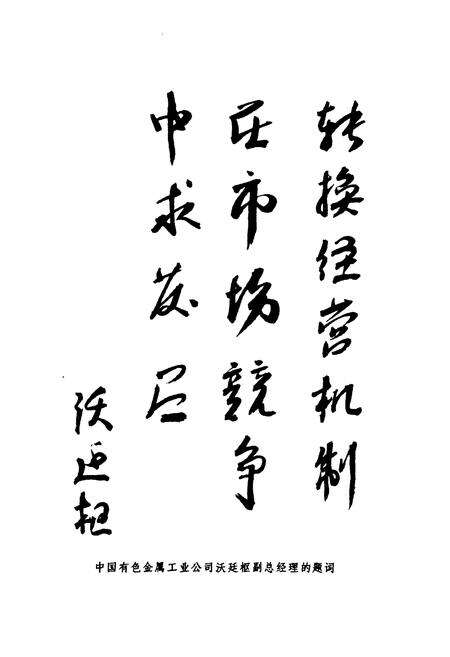 转换经营机制
在市场竞争
中求发展
沃廷枢
中国有色金属工业公司沃廷枢副总经理的题词